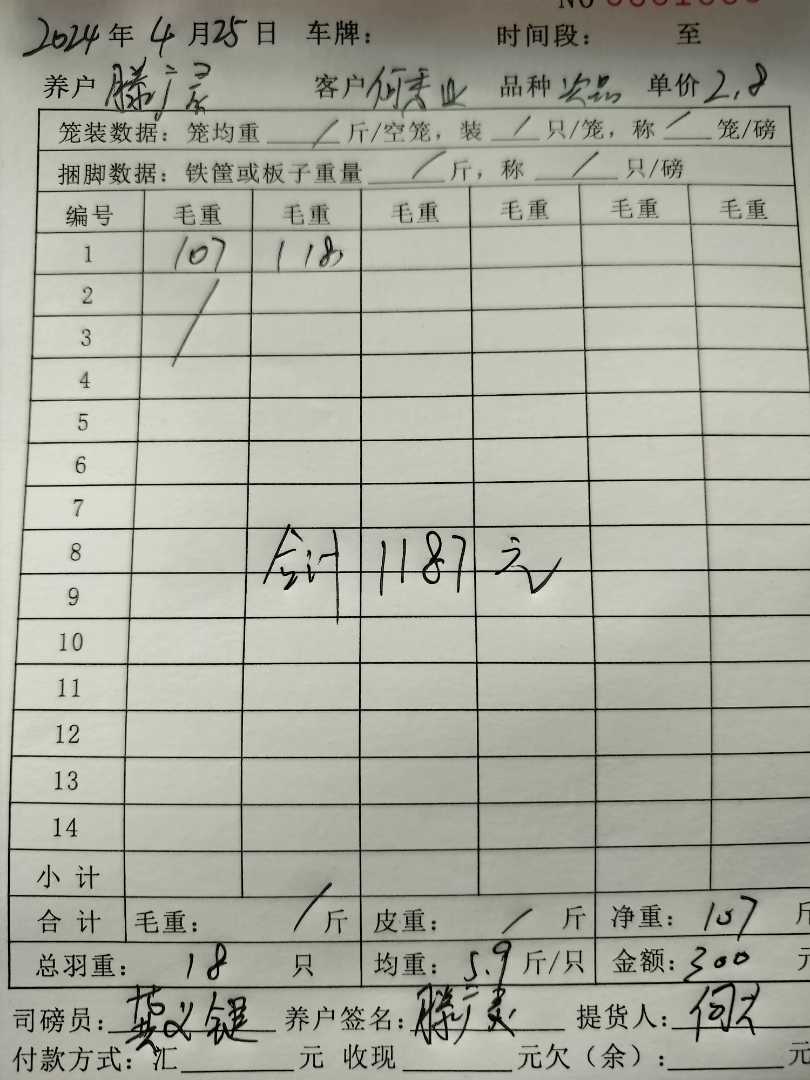 2024 年 4 月 25 日 车牌: 时间段: 至
养户 滕广 客户 何秀业 品种 次品 单价 2.8
笼装数据: 笼均重 / 斤/空笼, 装 / 只/笼, 称 / 笼/磅
捆脚数据: 铁筐或板子重量 / 斤, 称 / 只/磅
编号 毛重 毛重 毛重 毛重 毛重 毛重
1 107 118
2 /
3
4
5
6
7
8 合计 1187 元
9
10
11
12
13
14
小 计
合 计 毛重: / 斤 皮重: / 斤 净重: 107 斤
总羽重: 18 只 均重: 5.9 斤/只 金额: 300 元
司磅员: 黄义键 养户签名: 滕广 提货人: 何
付款方式: 汇 元 收现 元欠(余): 元